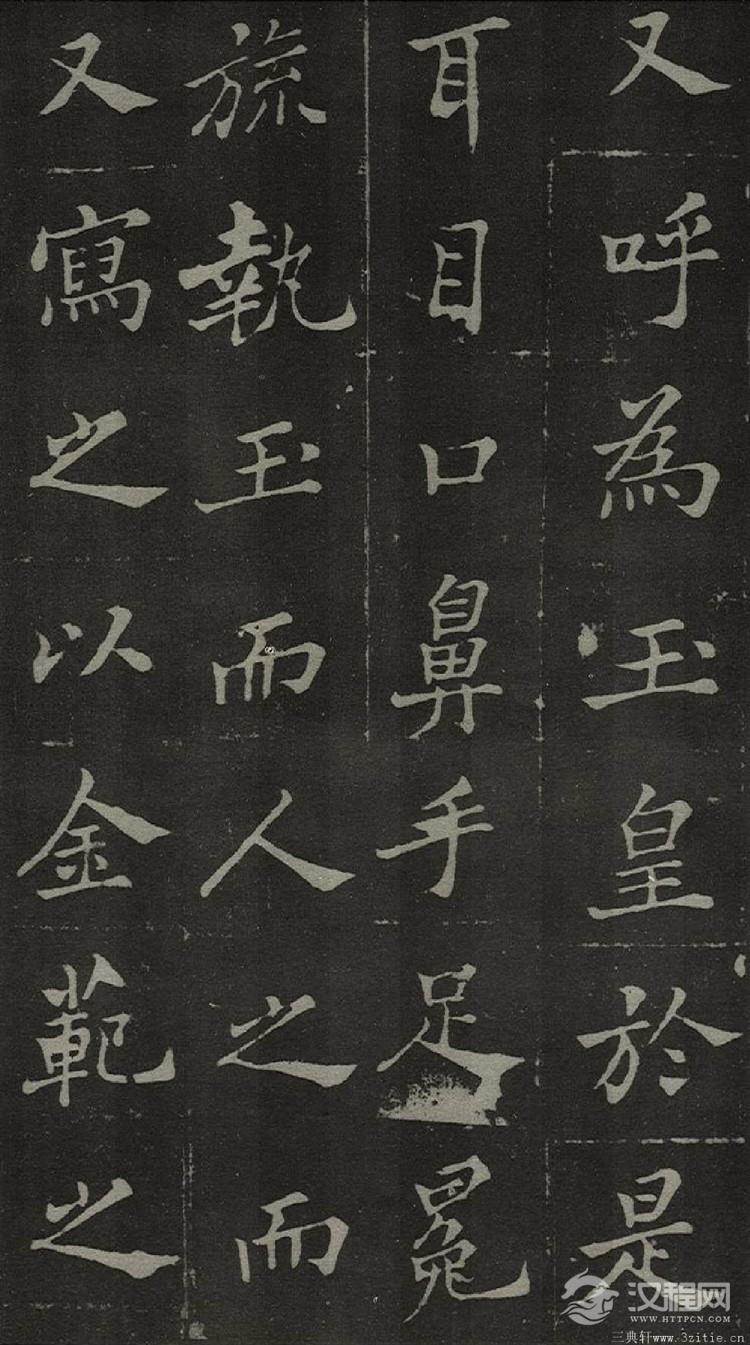 又呼為玉皇於是
耳目口鼻手足冕
旒執玉而人之而
又寫之以金範之
汉程网
WWW.HTTPCN.COM
三典轩www.3zitie.cn